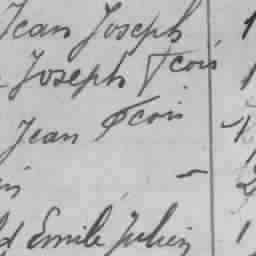 Jean Joseph 1
Joseph Fcois 1
Jean Fcois 1
–
d Emile Julien 1